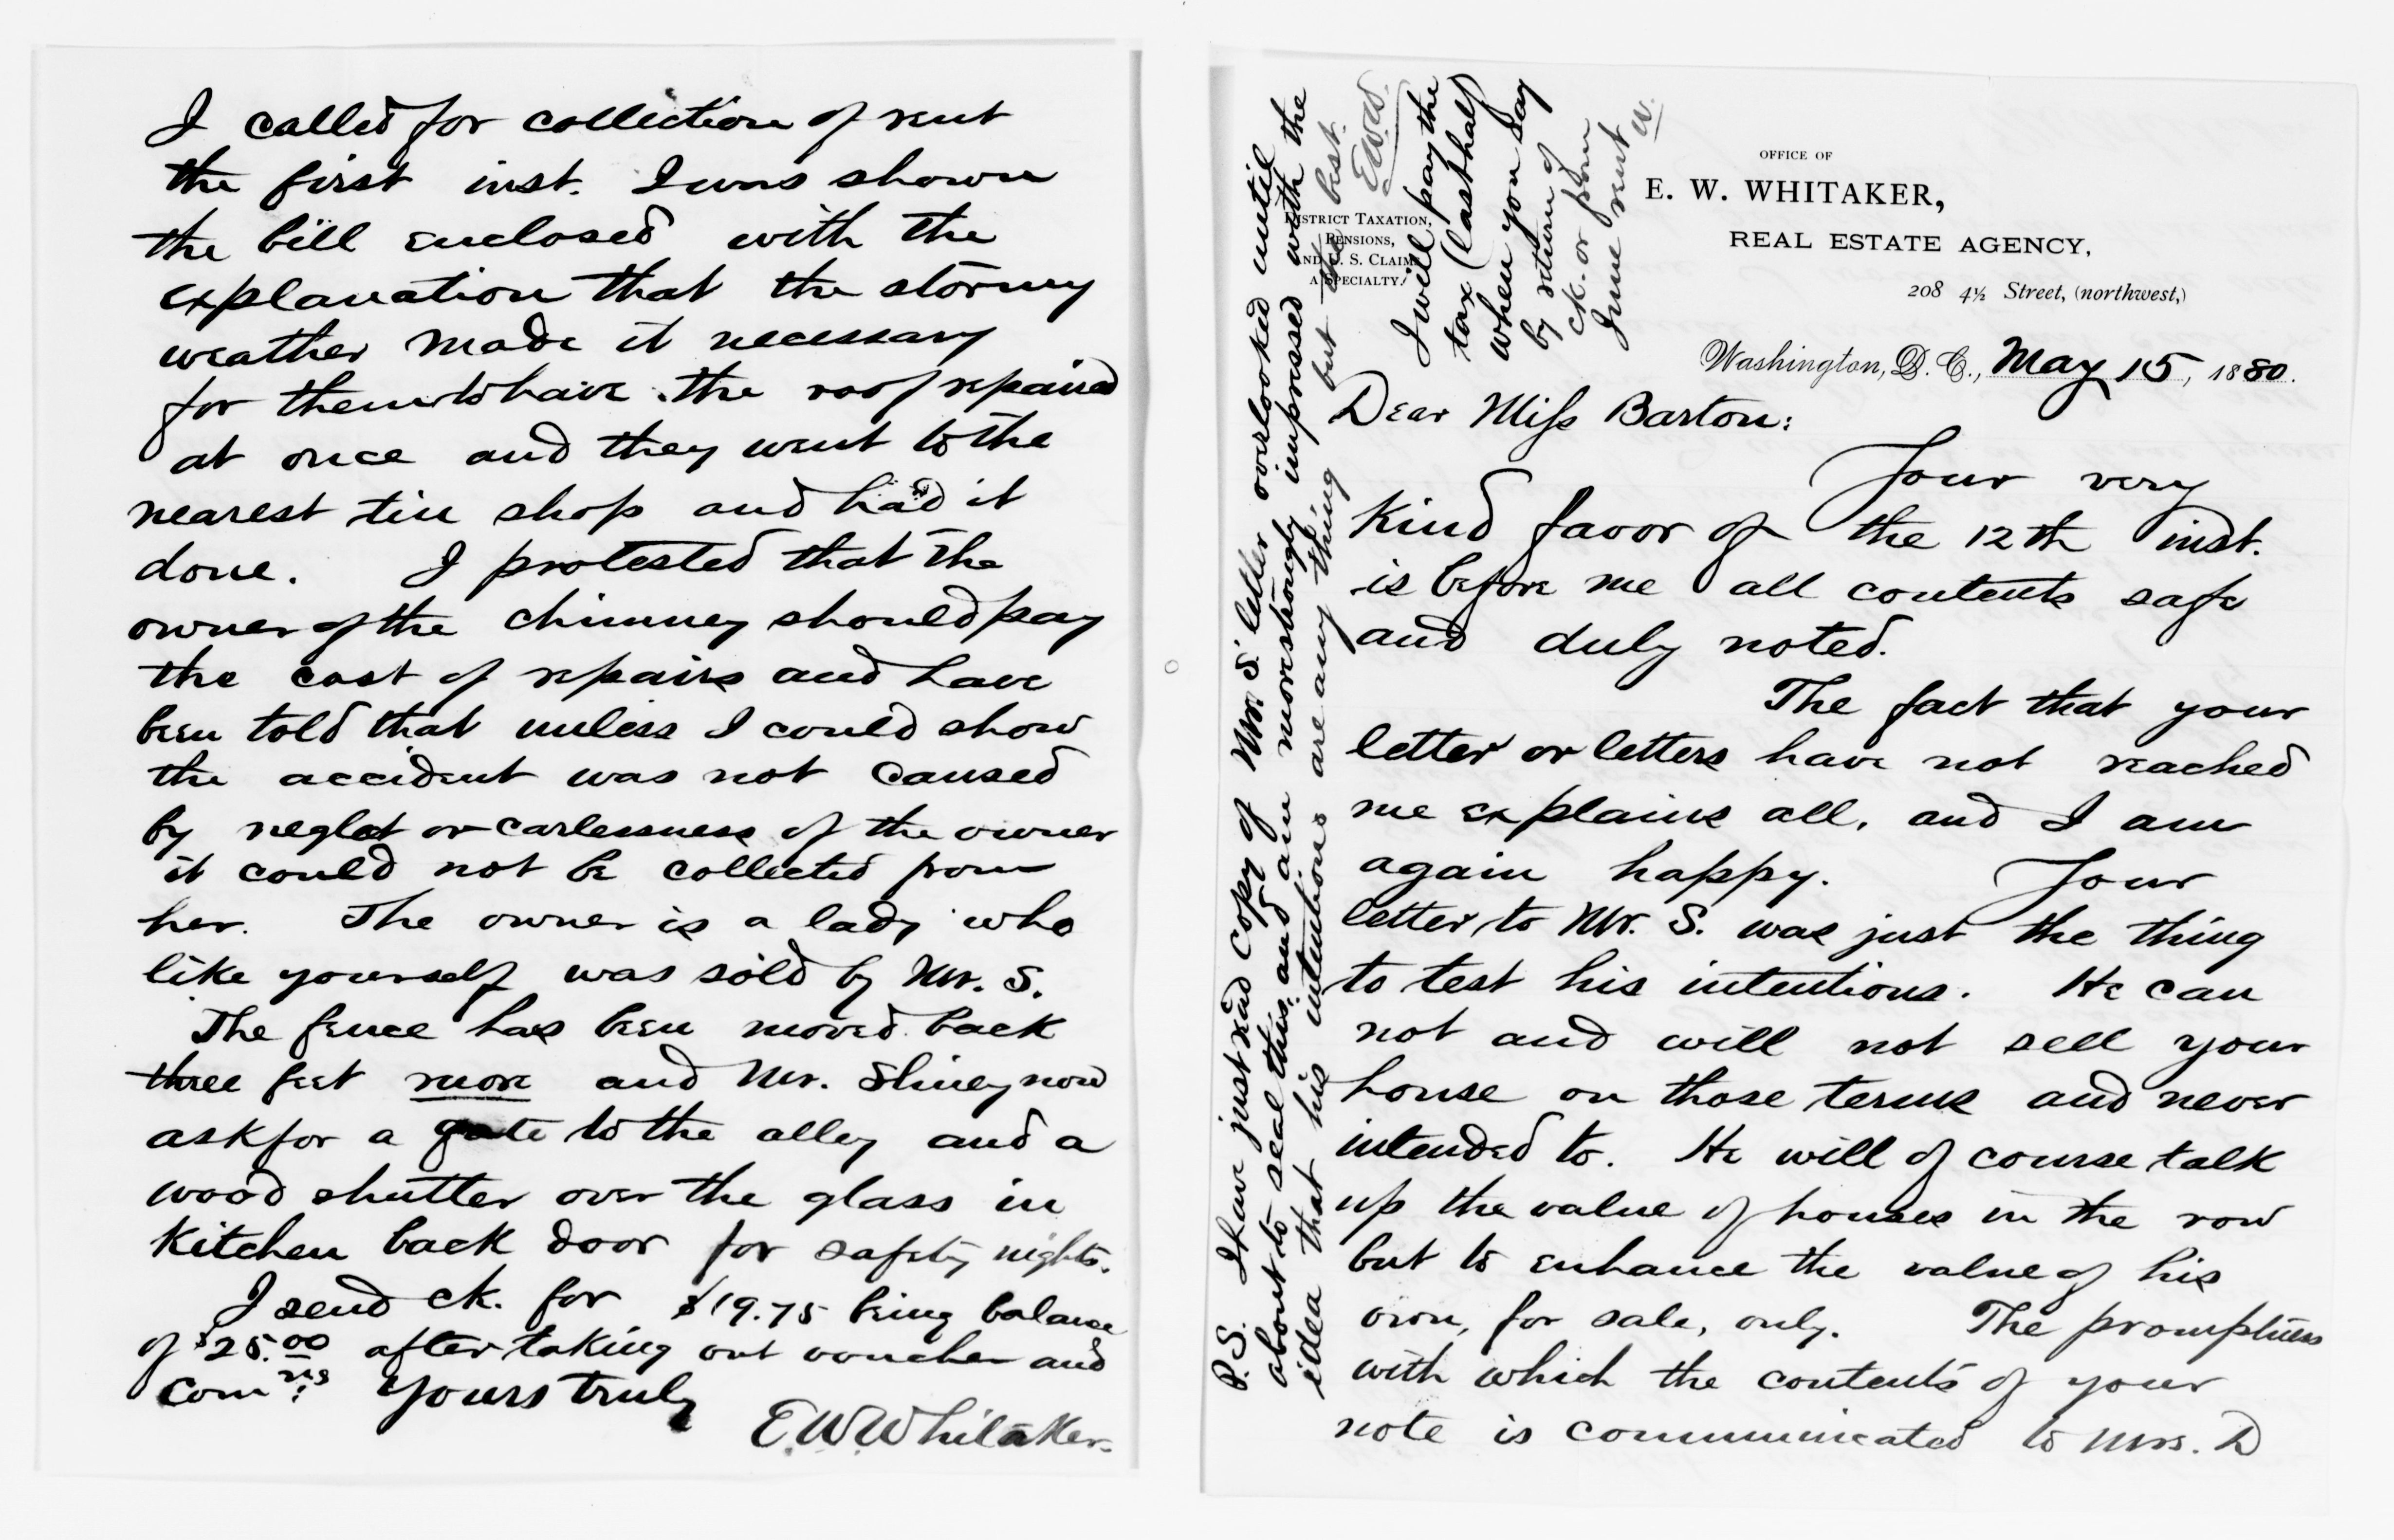 I called for collection of rent
the first inst. I was shown
the bill enclosed with the
explanation that the stormy
weather made it necessary
for them to have the roof repaired
at once and they went to the
nearest tin shop and had it
done. I protested that the
owner of the chimney should pay
the cost of repairs and have
been told that unless I could show
the accident was not caused
by neglect or carlessness of the owner
it could not be collected from
her. The owner is a lady who
like yourself was sold by Mr. S.
The fence has been moved back
three feet more and Mr. Shiney now
ask for a gate to the alley and a
wood shutter over the glass in
Kitchen back door for safety nights.
I send ck. for $19.75 being balance
of $25.00 after taking out voucher and
Comns: Yours truly
E. W. Whitaker.
OFFICE OF
E. W. WHITAKER,
REAL ESTATE AGENCY,
208 4½ Street, (northwest,)
DISTRICT TAXATION,
PENSIONS,
AND U. S. CLAIMS
A SPECIALTY.
Washington, D. C., May 15, 1880.
Dear Miss Barton:
Your very
kind favor of the 12th inst.
is before me all contents safe
and duly noted.
The fact that your
letter or letters have not reached
me explains all, and I am
again happy. Your
letter to Mr. S. was just the thing
to test his intentions. He can
not and will not sell your
house on those terms and never
intended to. He will of course talk
up the value of houses in the row
but to enhance the value of his
own, for sale, only. The promptness
with which the contents of your
note is communicated to Mrs. D
P.S. I have just read copy of Mr. S.' letter overlooked until
about to seal this, and am more strongly impressed with the
idea that his intentions are any thing but the best. E.W.W.
I will pay the
tax (last half)
when you say
by return of
ck. or from
June rent
W.